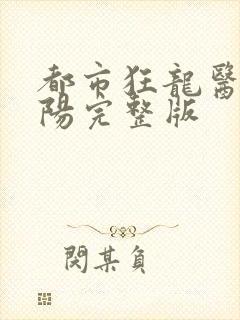 都市狂龍醫
陽完整版
閔某負